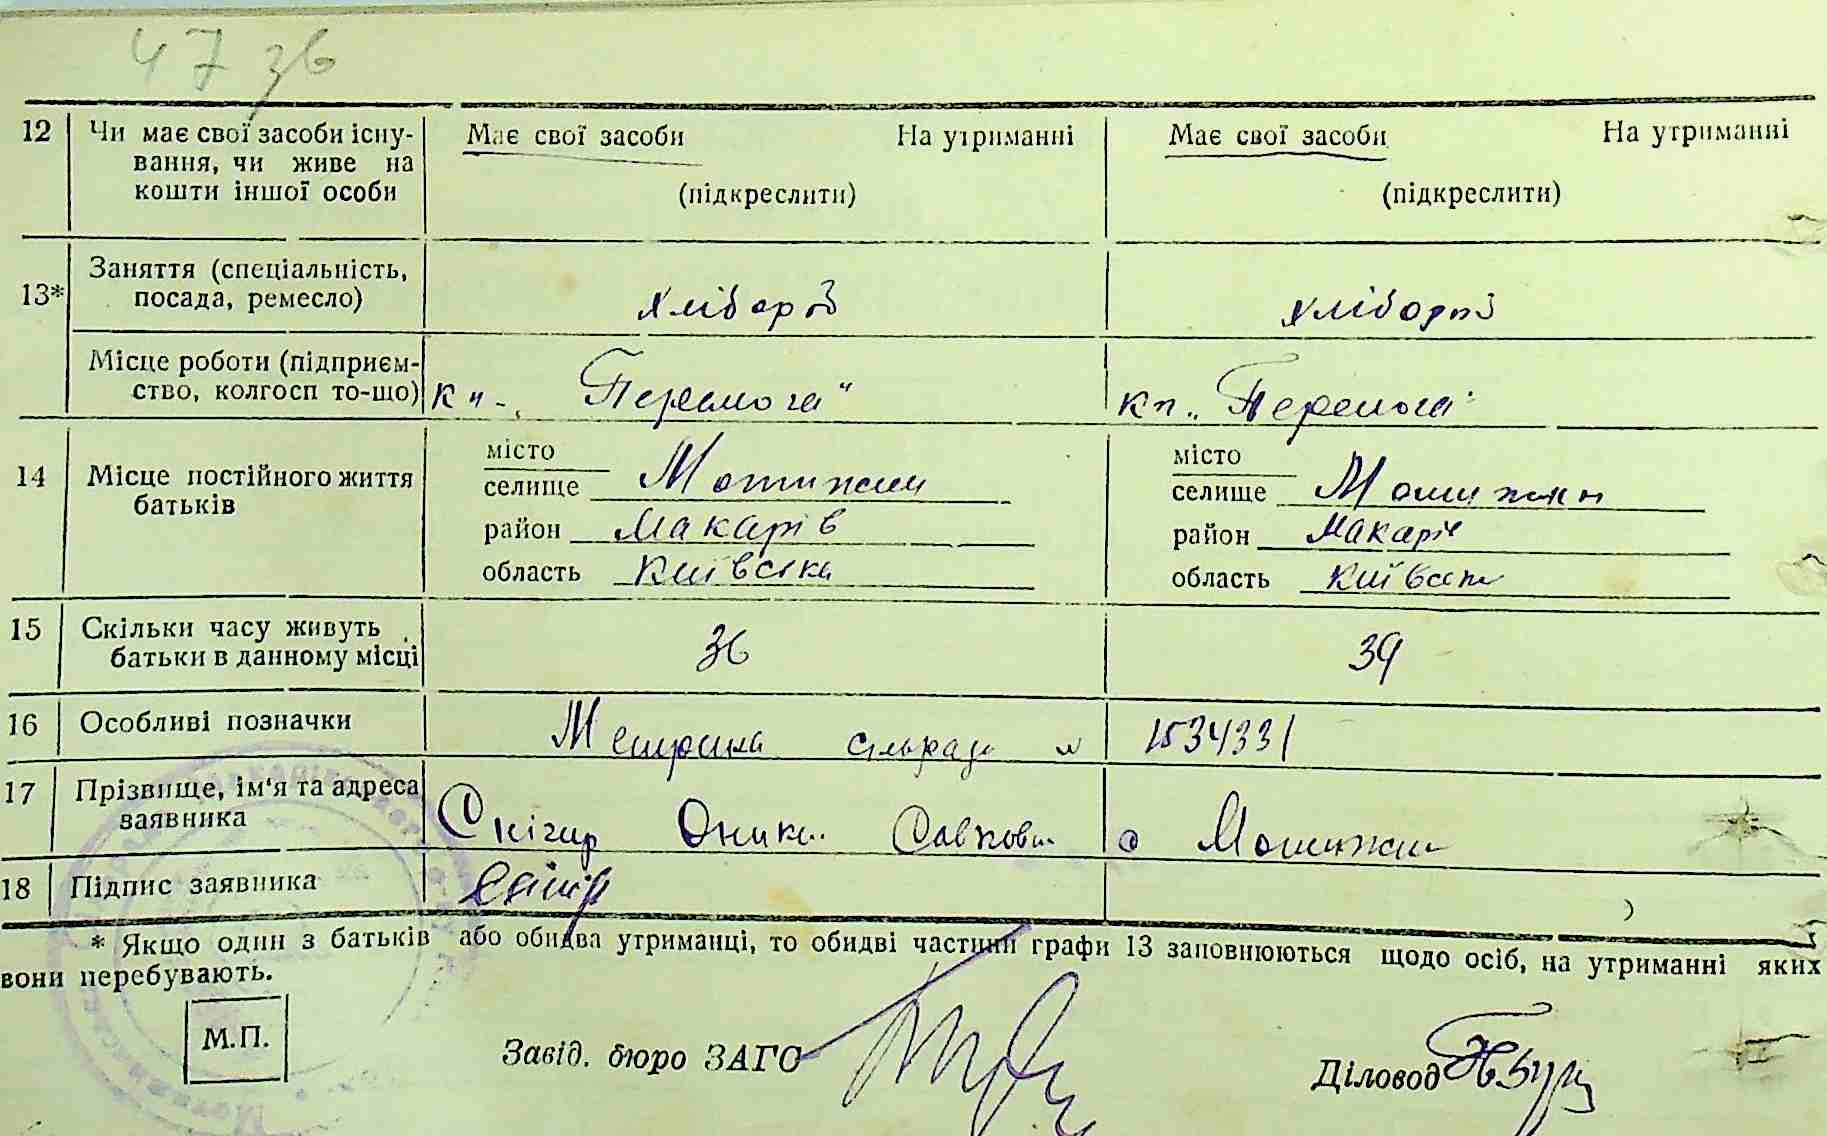 47 зв
12 Чи має свої засоби існу- Має свої засоби На утриманні Має свої засоби На утриманні
вання, чи живе на
кошти іншої особи (підкреслити) (підкреслити)
13* Заняття (спеціальність,
посада, ремесло) хлібороб хлібороб
Місце роботи (підприєм-
ство, колгосп то-що) "Перемога" кп. "Перемога"
14 Місце постійного життя місто місто
батьків селище Мотижин селище Мотижин
район Макарів район Макарів
область Київська область Київська
15 Скільки часу живуть
батьки в данному місці 36 39
16 Особливі позначки Метрика сільради № 1534331
17 Прізвище, ім'я та адреса
заявника Савкович с Мотижин
18 Підпис заявника
* Якщо один з батьків або обидва утриманці, то обидві частини графи 13 заповнюються щодо осіб, на утриманні яких
вони перебувають.
М.П.
Завід. бюро ЗАГС Діловод